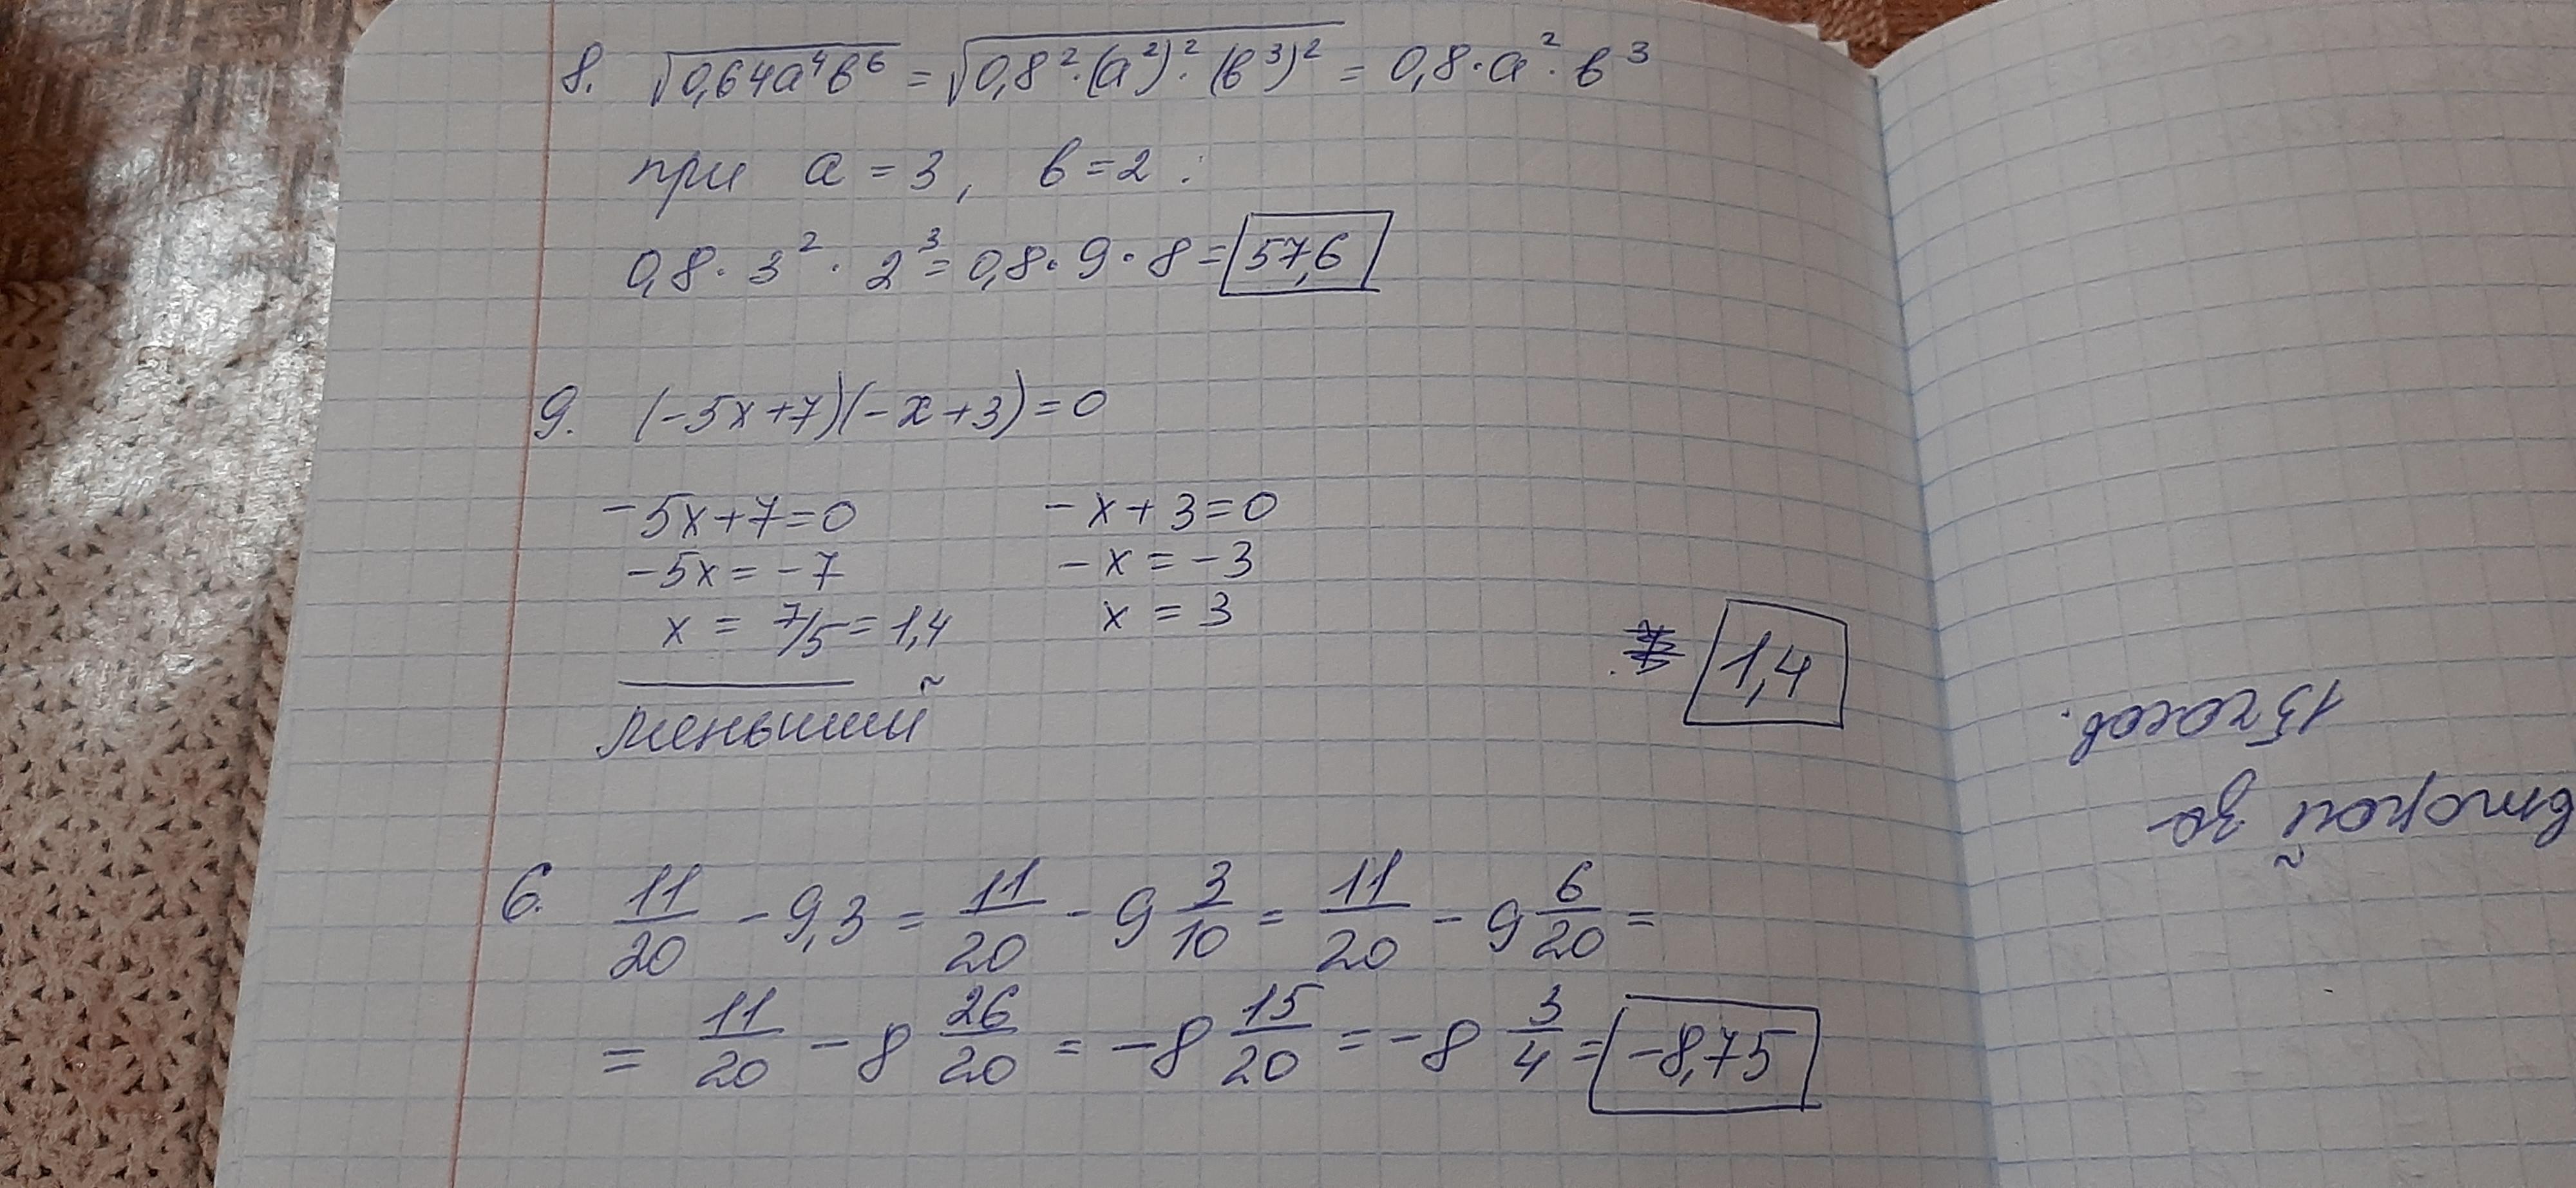 8. √0,64a⁴b⁶ = √0,8²·(a²)²·(b³)² = 0,8·a²·b³
при a = 3, b = 2:
0,8·3²·2³ = 0,8·9·8 = 57,6
9. (-5x+7)(-x+3)=0
-5x+7=0 -x+3=0
-5x=-7 -x=-3
x = 7/5 = 1,4 x = 3
1,4
меньший
6. 11/20 - 9,3 = 11/20 - 9 3/10 = 11/20 - 9 6/20 =
= 11/20 - 8 26/20 = -8 15/20 = -8 3/4 = -8,75
второй за
15 часов.